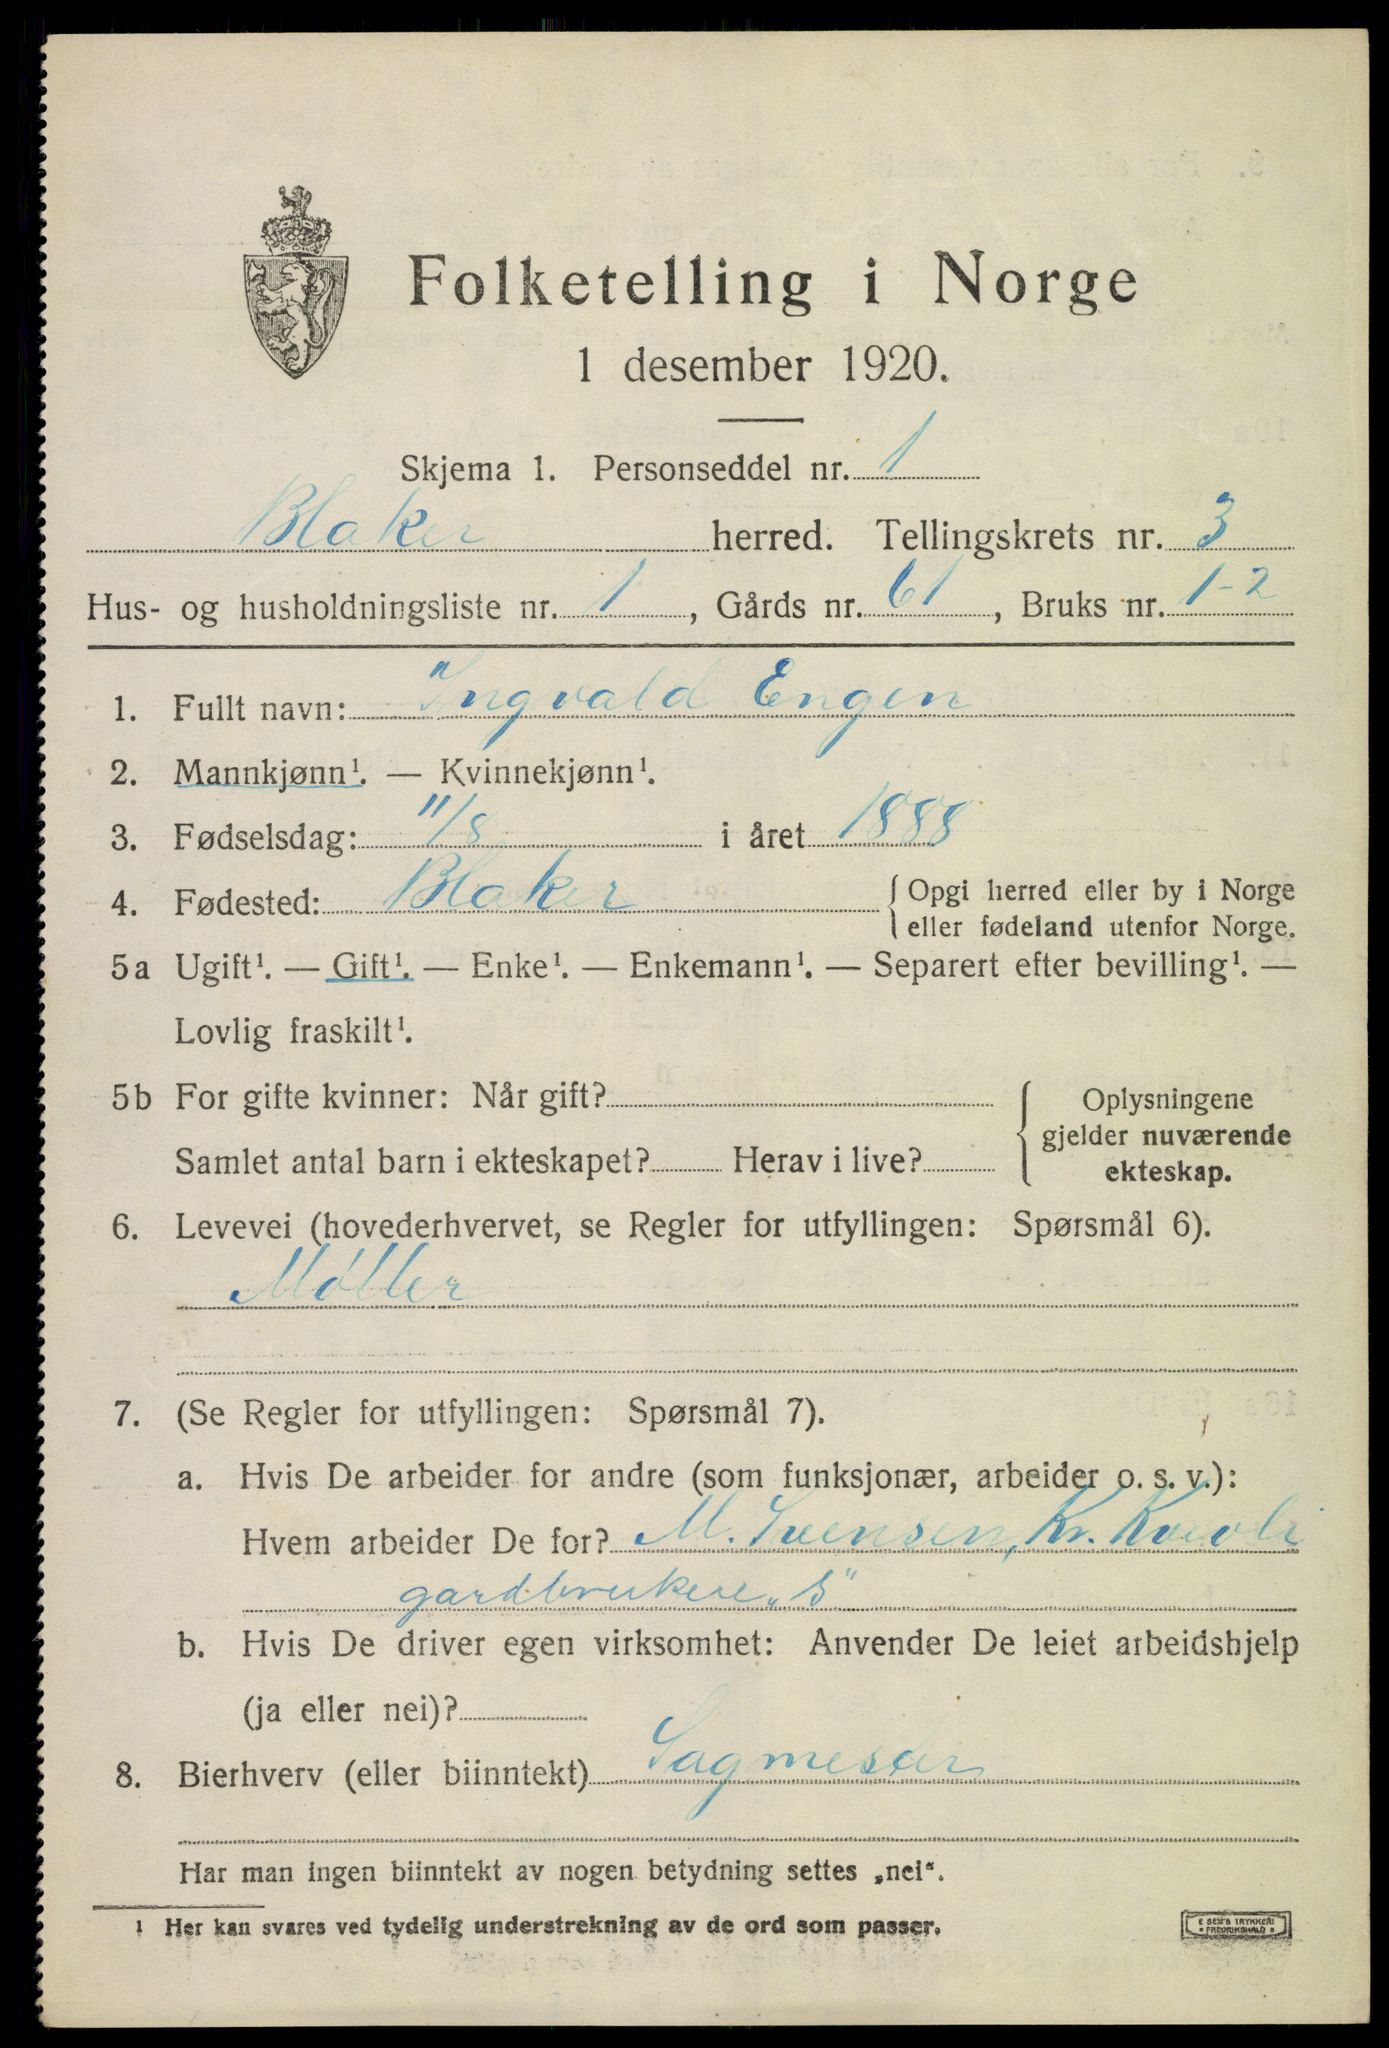 Folketelling i Norge
1 desember 1920.
Skjema 1. Personseddel nr. 1
Blaker herred. Tellingskrets nr. 3
Hus- og husholdningsliste nr. 1, Gårds nr. 61, Bruks nr. 1-2
1. Fullt navn: Ingvald Engen
2. Mannkjønn¹. — Kvinnekjønn¹.
3. Fødselsdag: 11/8 i året 1888
4. Fødested: Blaker { Opgi herred eller by i Norge
eller fødeland utenfor Norge.
5a Ugift¹. — Gift¹. — Enke¹. — Enkemann¹. — Separert efter bevilling¹. —
Lovlig fraskilt¹.
5b For gifte kvinner: Når gift?
Samlet antal barn i ekteskapet? Herav i live?
{ Oplysningene
gjelder nuværende
ekteskap.
6. Levevei (hovederhvervet, se Regler for utfyllingen: Spørsmål 6).
Møller
7. (Se Regler for utfyllingen: Spørsmål 7).
a. Hvis De arbeider for andre (som funksjonær, arbeider o. s. v.):
Hvem arbeider De for? M. Svensen, Kr.
gardbrukere „S"
b. Hvis De driver egen virksomhet: Anvender De leiet arbeidshjelp
(ja eller nei)?
8. Bierhverv (eller biinntekt) Sagmester
Har man ingen biinntekt av nogen betydning settes „nei“.
1 Her kan svares ved tydelig understrekning av de ord som passer.
E SEM'S TRYKKERI
FREDRIKSHALD